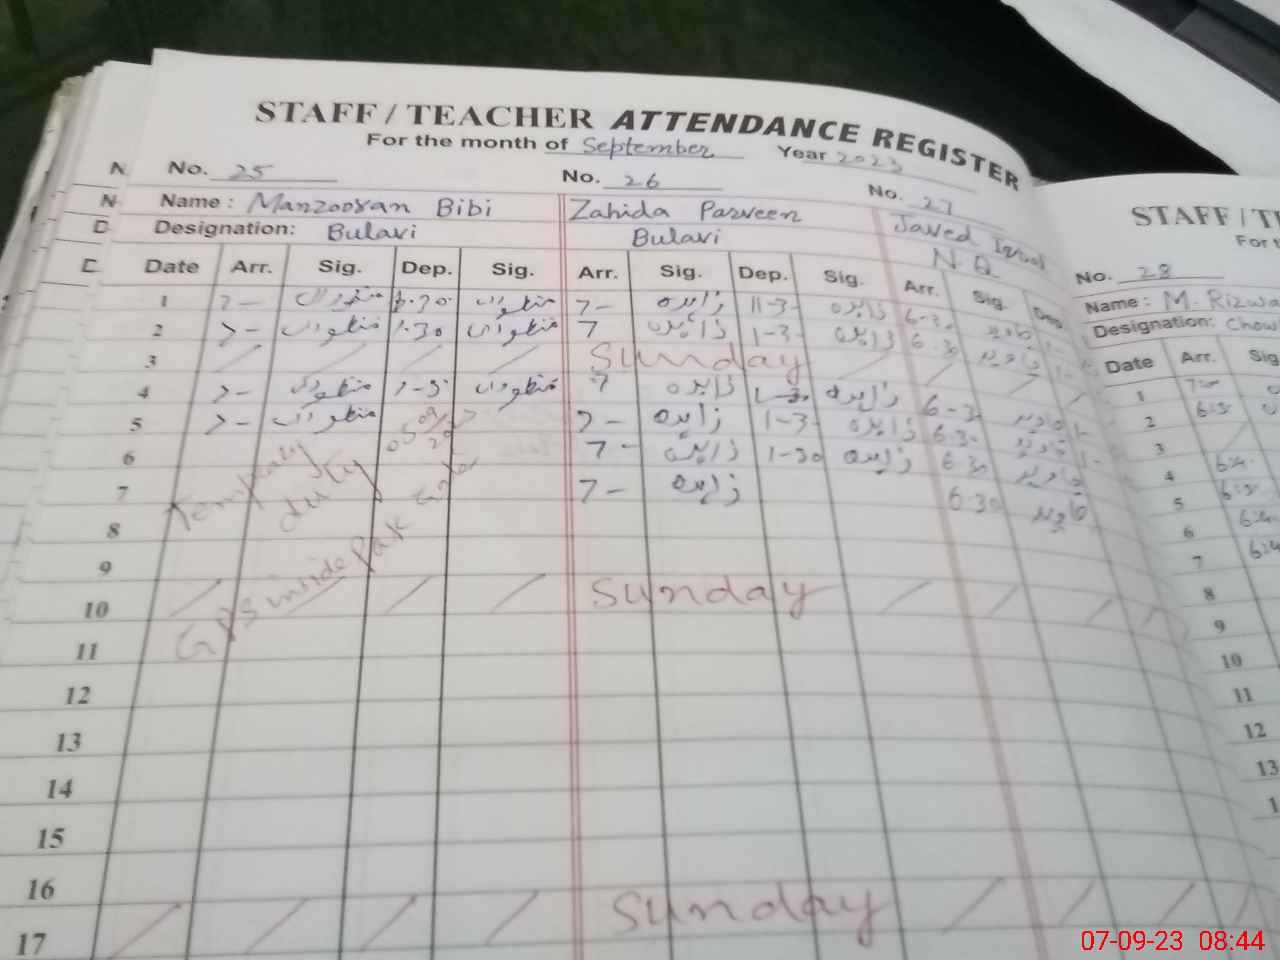 STAFF / TEACHER ATTENDANCE REGISTER
For the month of September Year 2023
No. 25 No. 26 No. 27
Name : Manzooran Bibi Zahida Parveen Javed
Designation: Bulavi Bulavi N.Q
Date Arr. Sig. Dep. Sig. Arr. Sig. Dep. Sig. Arr. Sig. Dep.
1 7- منظوراں منظوراں 7- زاہدہ 11-3 زاہدہ 6-30 جاوید
2 7- منظوراں 1.30 منظوراں 7 زاہدہ 1-3 زاہدہ 6.30 جاوید
3 Sunday
4 7- منظوراں منظوراں 7 زاہدہ 1-30 زاہدہ 6-30 جاوید
5 7- منظوراں 7- زاہدہ 1-3 زاہدہ 6.30 جاوید
6 7- زاہدہ 1-30 زاہدہ 6.30 جاوید
7 7- زاہدہ 6.30 جاوید
Tempraly duty 05 09
GPS inside Pak Gate
8
9
10 Sunday
11
12
13
14
15
16
17 Sunday
STAFF / T
For t
No. 28
Name : M. Rizwa
Designation: Chow
Date Arr. Sig
1
2
3
4
5
6
7
8
9
10
11
12
13
1
07-09-23 08:44